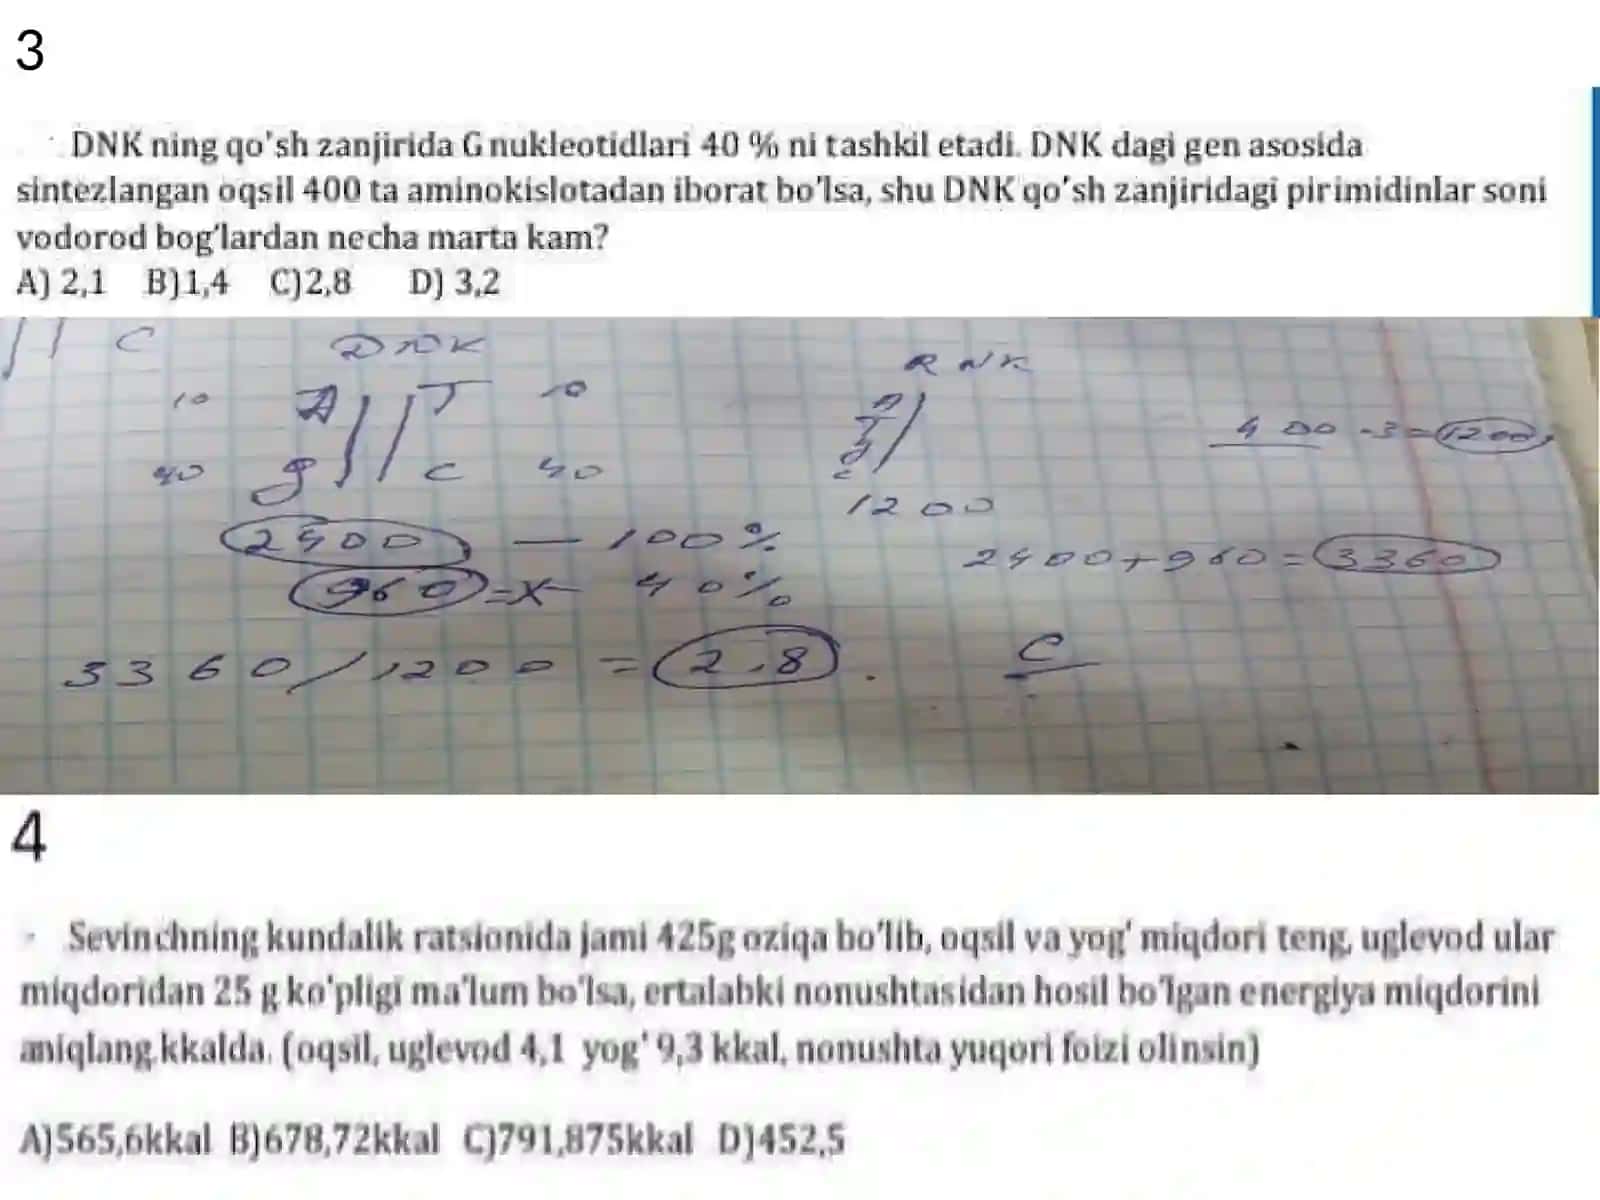 3
DNK ning qo'sh zanjirida G nukleotidlari 40 % ni tashkil etadi. DNK dagi gen asosida
sintezlangan oqsil 400 ta aminokislotadan iborat bo'lsa, shu DNK qo'sh zanjiridagi pirimidinlar soni
vodorod bog'lardan necha marta kam?
A) 2,1 B)1,4 C)2,8 D) 3,2
C DNK RNK
10 A T 10 A 400 · 3 = 1200
40 g C 40 C
1200
2400 — 100%
2400 + 960 = 3360
960 = x — 40%
3360 / 1200 = 2.8. C
4
Sevinchning kundalik ratsionida jami 425g oziqa bo'lib, oqsil va yog' miqdori teng, uglevod ular
miqdoridan 25 g ko'pligi ma'lum bo'lsa, ertalabki nonushtasidan hosil bo'lgan energiya miqdorini
aniqlang.kkalda. (oqsil, uglevod 4,1 yog' 9,3 kkal, nonushta yuqori foizi olinsin)
A)565,6kkal B)678,72kkal C)791,875kkal D)452,5